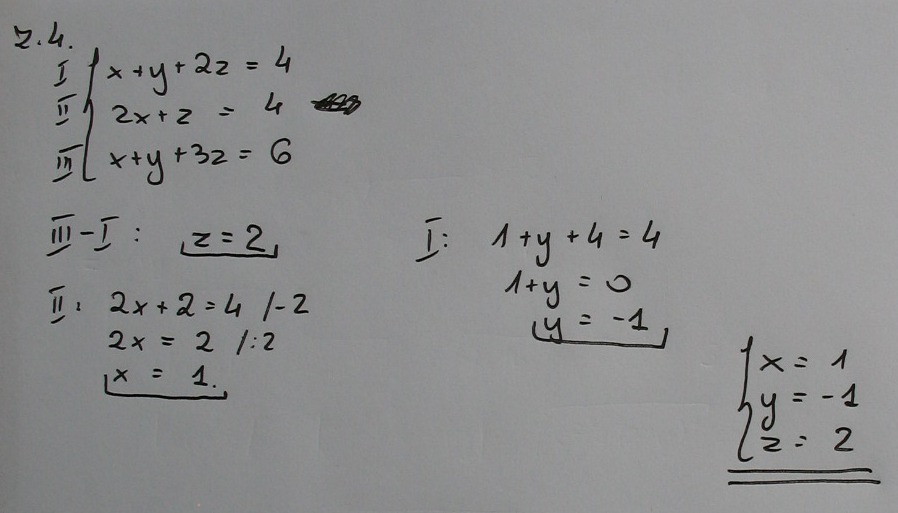 z.4.
I x+y+2z = 4
II 2x+z = 4
III x+y+3z = 6
III-I: z=2
II: 2x+2=4 /-2
2x = 2 /:2
x = 1.
I: 1+y+4=4
1+y = 0
y = -1
x = 1
y = -1
z = 2